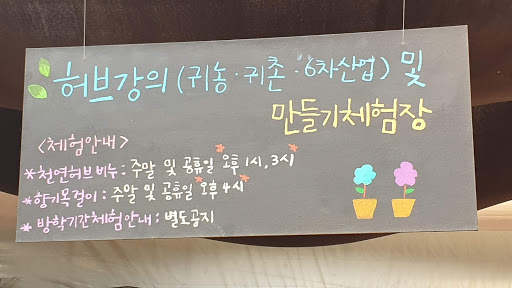 허브강의 (귀농·귀촌·6차산업) 및
만들기체험장
<체험안내>
*천연허브비누 : 주말 및 공휴일 오후 1시, 3시
*향기목걸이 : 주말 및 공휴일 오후 4시
*방학기간체험안내 : 별도공지